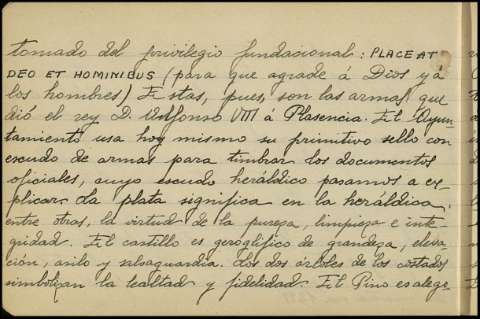 tomado del privilegio fundacional: PLACEAT
DEO ET HOMINIBUS (para que agrade á Dios y á
los hombres) Estas, pues, son las armas que
dió el rey D. Alfonso VIII á Plasencia. El Ayun-
tamiento usa hoy mismo su primitivo sello con
escudo de armas para timbrar los documentos
oficiales, cuyo escudo heráldico pasamos a ex-
plicar. La plata significa en la heráldica,
entre otras, la virtud de la pureza, limpieza é inte-
gridad. El castillo es geroglífico de grandeza, eleva-
ción, asilo y salvaguardia. Los dos árboles de los costados
simbolizan la lealtad y fidelidad. El Pino es alegó-